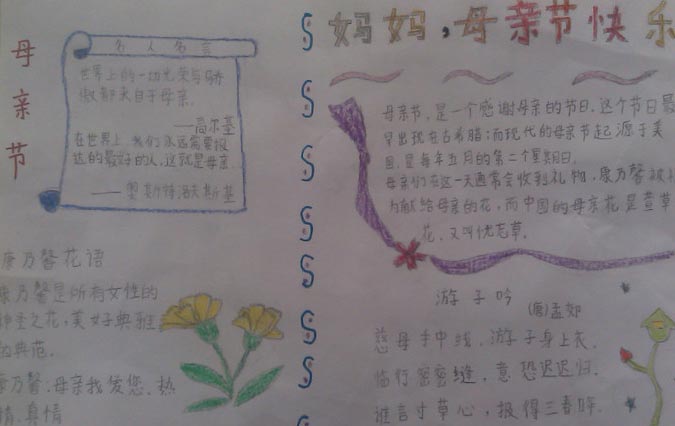 母亲节
名人名言
世界上的一切光荣与骄
傲都来自于母亲.
——高尔基
在世界上我们永远需要报
达的最好的人,这就是母亲.
——奥斯特洛夫斯基
康乃馨花语
康乃馨是所有女性的
神圣之花,美好典雅
的典范.
康乃馨:母亲我爱您、热
情、真情
妈妈,母亲节快乐
母亲节,是一个感谢母亲的节日.这个节日最
早出现在古希腊;而现代的母亲节起源于美
国,是每年五月的第二个星期日.
母亲们在这一天通常会收到礼物,康乃馨被
为献给母亲的花,而中国的母亲花是萱草
花,又叫忧忘草.
游子吟
(唐)孟郊
慈母手中线,游子身上衣.
临行密密缝,意恐迟迟归.
谁言寸草心,报得三春晖.